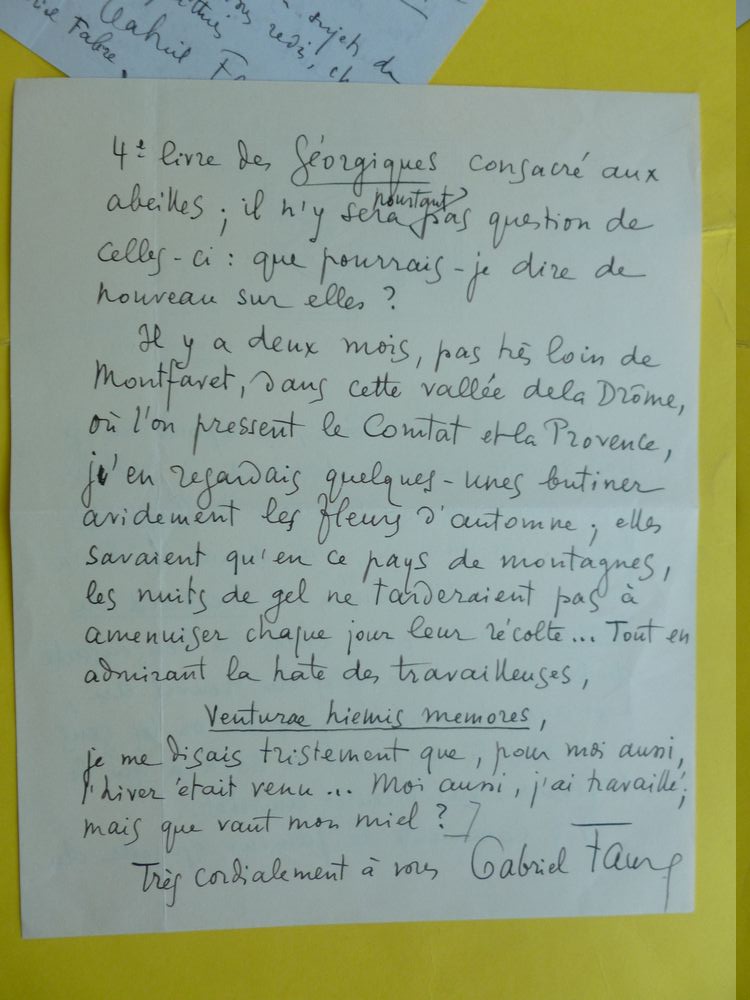 sujet du
redis, ch
Gabriel Fa
Fabre,
4e livre des Géorgiques consacré aux
pourtant
abeilles ; il n'y sera pas question de
celles-ci : que pourrais-je dire de
nouveau sur elles ?
Il y a deux mois, pas très loin de
Montfavet, dans cette vallée de la Drôme,
où l'on pressent le Comtat et la Provence,
j'en regardais quelques-unes butiner
avidement les fleurs d'automne ; elles
savaient qu'en ce pays de montagnes,
les nuits de gel ne tarderaient pas à
amenuiser chaque jour leur récolte... Tout en
admirant la hate des travailleuses,
Venturae hiemis memores,
je me disais tristement que, pour moi aussi,
l'hiver était venu ... Moi aussi, j'ai travaillé ;
mais que vaut mon miel ? ]
Très cordialement à vous Gabriel Faure